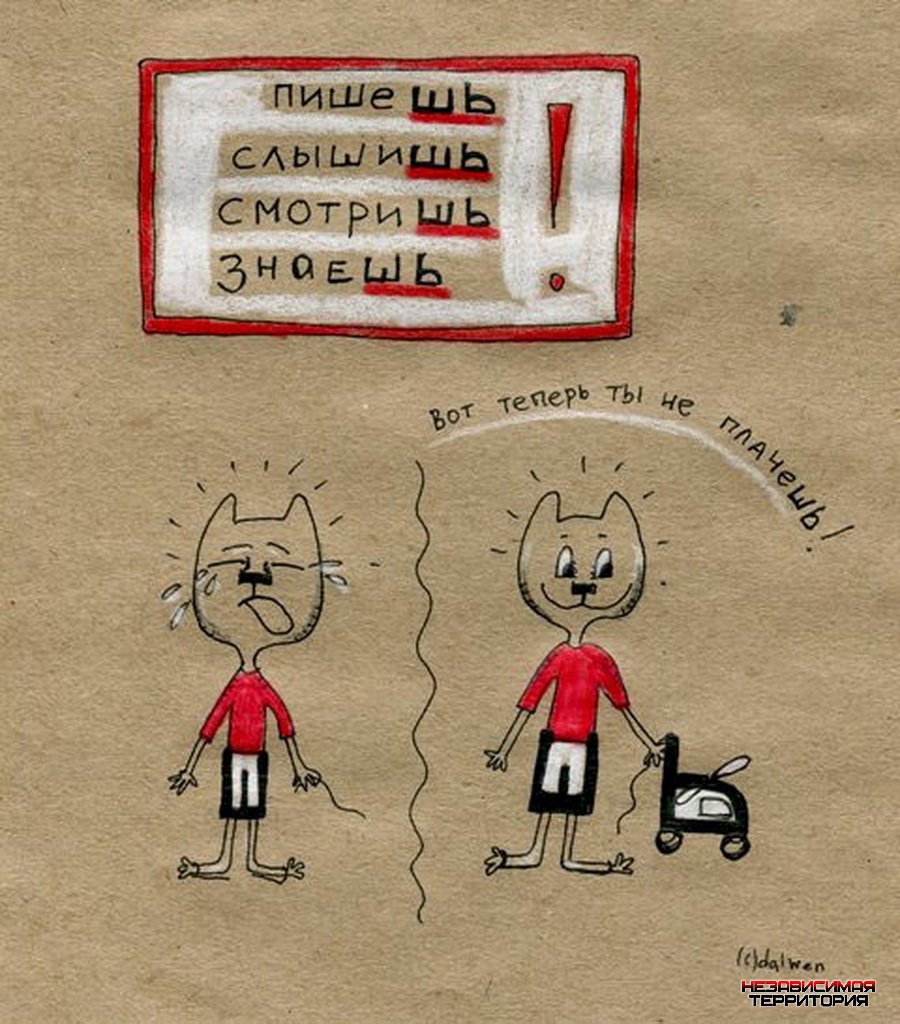 пишешь
слышишь
смотришь
знаешь
!
Вот теперь ты не плачешь!
(c)dalwen
НЕЗАВИСИМАЯ
ТЕРРИТОРИЯ